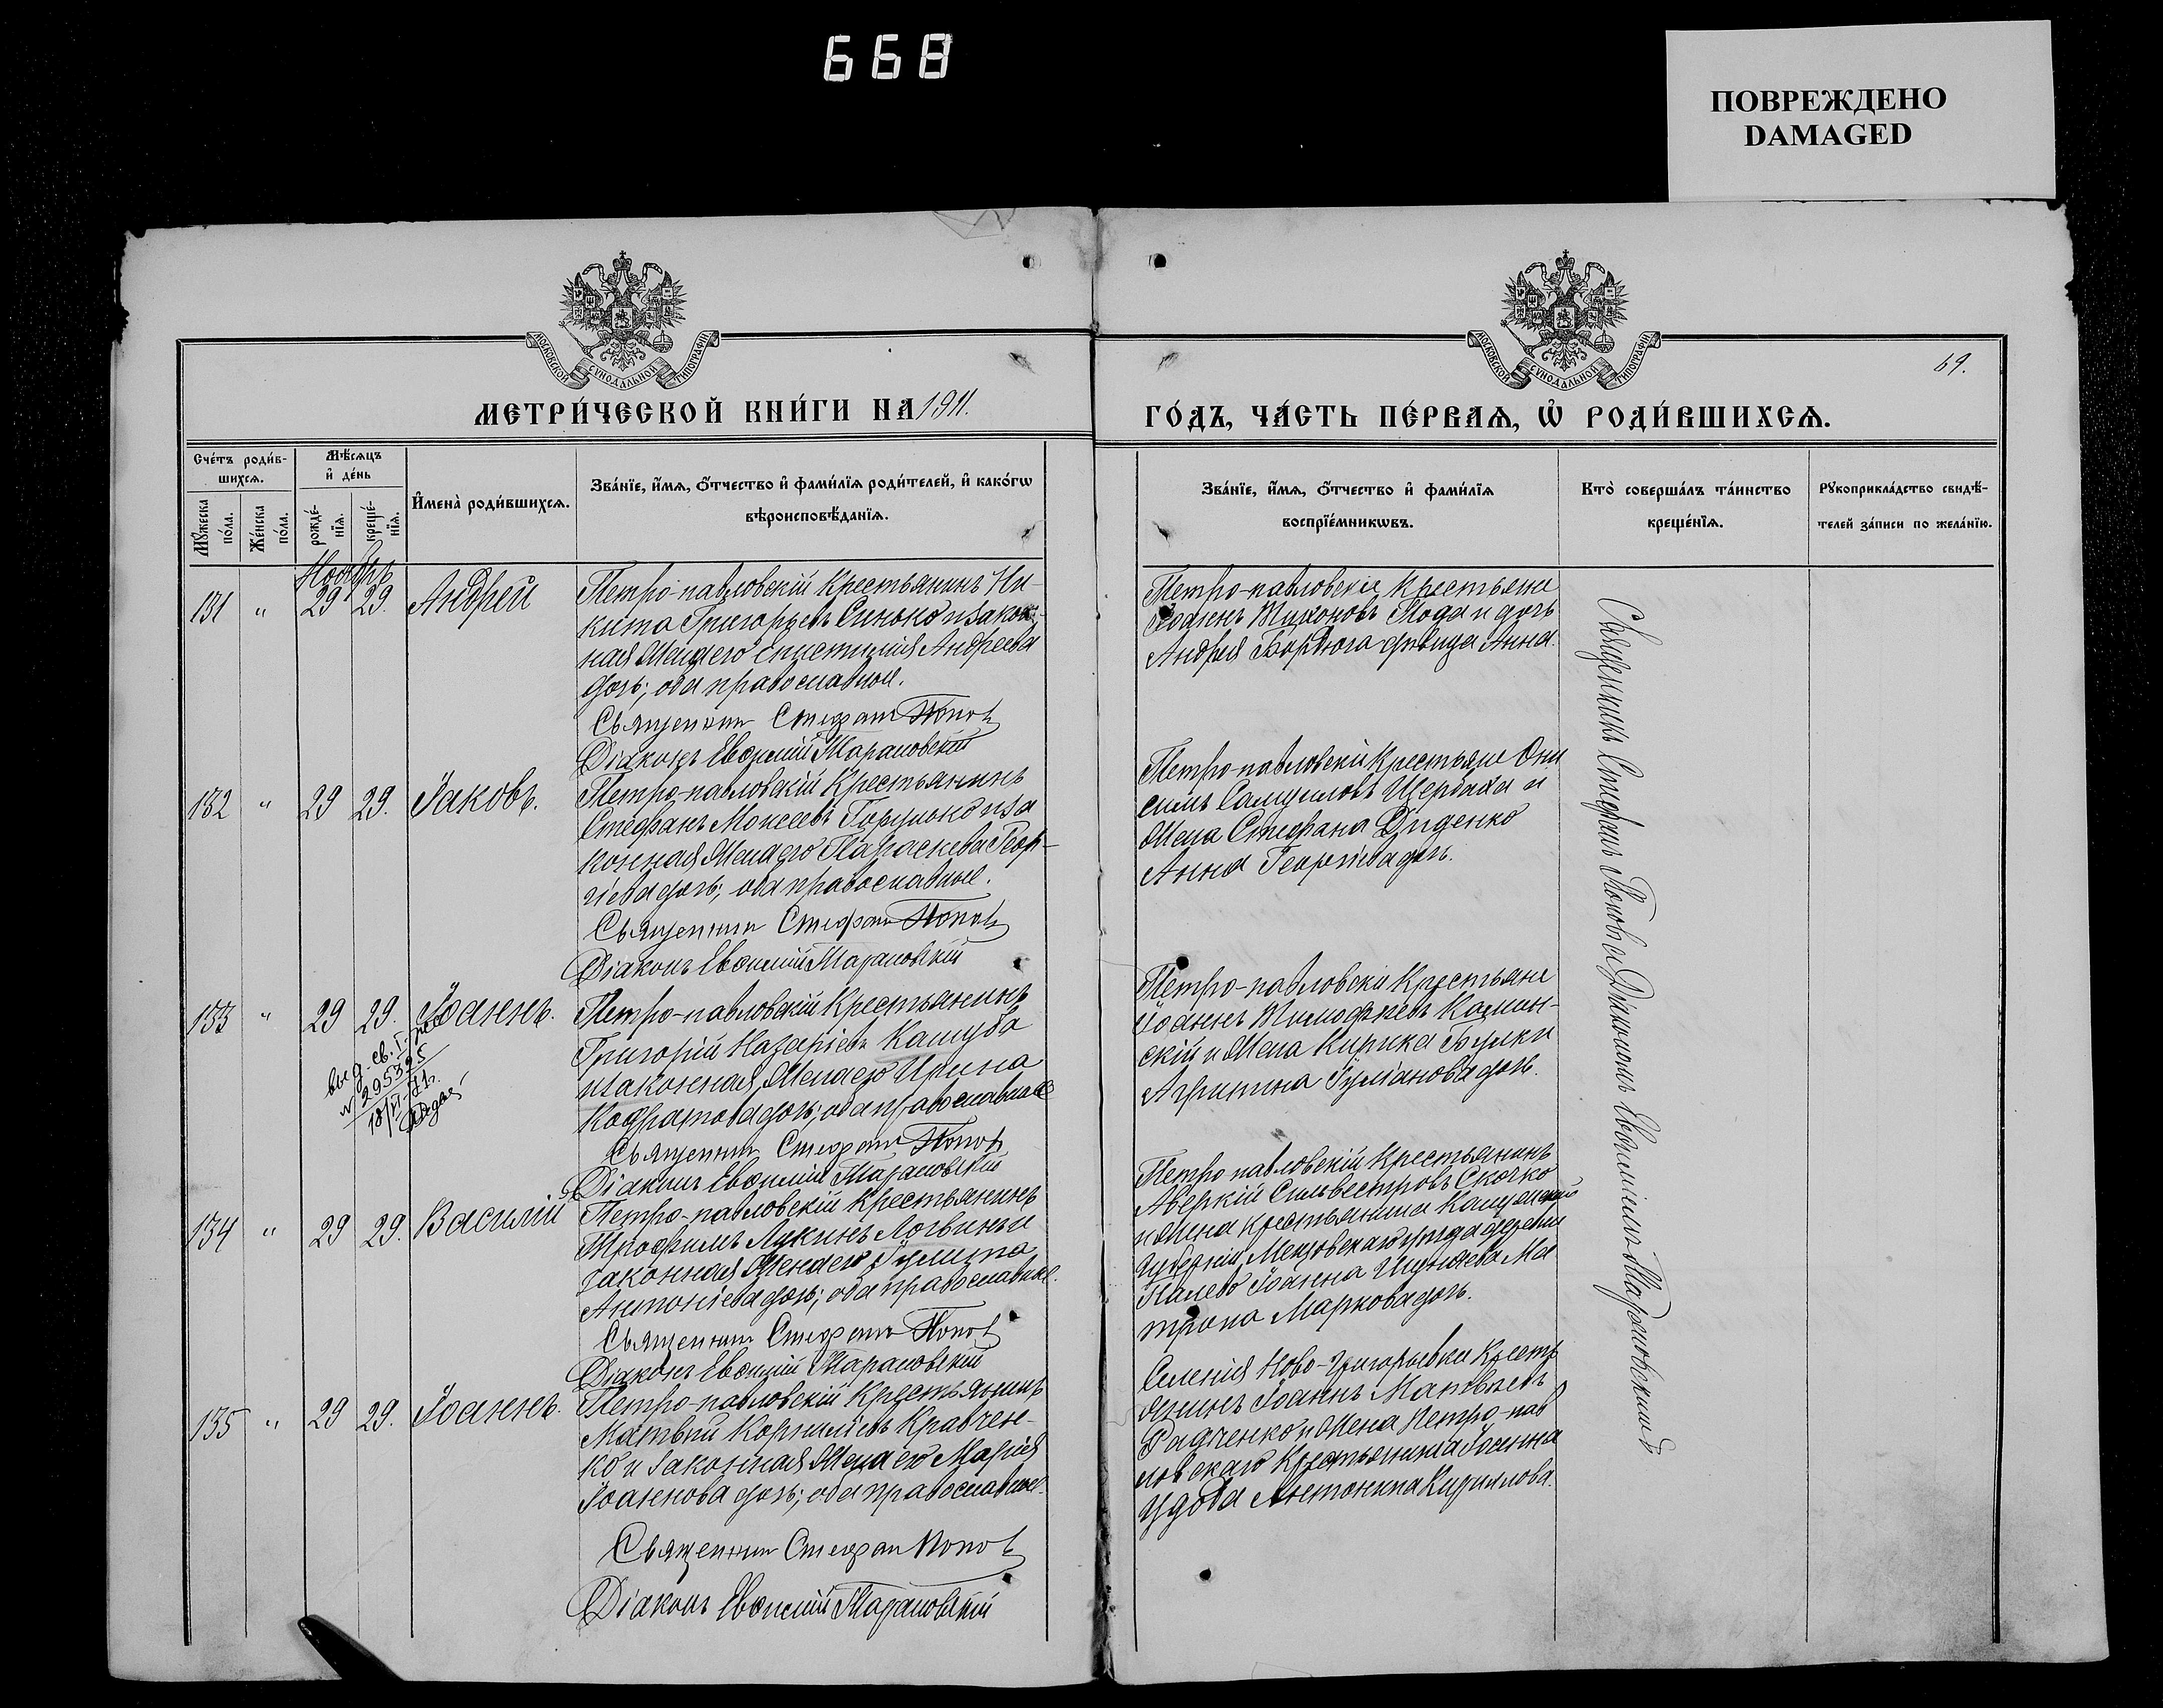 668
ПОВРЕЖДЕНО
DAMAGED
МОСКОВСКОЙ СѴНОДАЛЬНОЙ ТИПОГРАФІИ
МОСКОВСКОЙ СѴНОДАЛЬНОЙ ТИПОГРАФІИ
69.
МЕТРИ́ЧЕСКОЙ КНИ́ГИ НА 1911.
ГО́ДЪ, ЧА́СТЬ ПЕ́РВАѦ, Ѡ҆ РОДИ́ВШИХСѦ.
Сче́тъ роди́в-
шихсѧ.
Мꙋ́жеска
по́ла.
Же́нска
по́ла.
Мѣ́сѧцъ
и҆ де́нь
рожде́-
нїѧ.
креще́-
нїѧ.
И҆мена̀ роди́вшихсѧ.
Зва́нїе, и҆́мѧ, ѻ҆́тчество и҆ фами́лїѧ роди́телей, и҆ како́гѡ
вѣроисповѣ́данїѧ.
Зва́нїе, и҆́мѧ, ѻ҆́тчество и҆ фами́лїѧ
воспрїе́мникѡвъ.
Кто̀ соверша́лъ та́инство
креще́нїѧ.
Рꙋкоприкла́дство свидѣ́-
телей за́писи по жела́нїю.
Ноябрь
131 " 29 29. Андрей
Петро-павловскій Крестьянинъ Ни-
кита Григорьевъ Синько и закон-
ная Жена его Андреева
дочь; оба православные.
Священникъ Стефанъ Поповъ
Діаконъ Евѳимій Тарановскій
Петро-павловскіе Крестьяне
Іоаннъ Тихоновъ и дочь
Андрея Бордюга дѣвица Анна.
132 " 29 29. Іаковъ.
Петро-павловскій Крестьянинъ
Стефанъ Моисеевъ и за
конная Жена его Параскева Геор-
гіева дочь; оба православные.
Священникъ Стефанъ Поповъ
Діаконъ Евѳимій Тарановскій
Петро-павловскіе Крестьяне Они
симъ Самуиловъ Щербаха и
Жена Стефана Диденко
Анна Георгіева дочь.
133 " 29 29. Іоаннъ.
выд. св.
№ 295325
Петро-павловскій Крестьянинъ
Григорій Назаріевъ Кашуба
и законная Жена его Ирина
Кодратова дочь; оба православные
Священникъ Стефанъ Поповъ
Діаконъ Евѳимій Тарановскій
Петро-павловскіе Крестьяне
Іоаннъ Тимофеевъ Камин-
скій и Жена Кирика Булки
Агрипина Іуліанова дочь.
134 " 29 29. Василій
Петро-павловскій Крестьянинъ
Трофимъ Лукинъ Логвинъ и
законная Жена его Іулита
Антоніева дочь; оба православные.
Священникъ Стефанъ Поповъ
Діаконъ Евѳимій Тарановскій
Петро павловскій Крестьянинъ
Аверкій Сильвестровъ Скочко
и Жена Крестьянина Калужской
Губерніи, уѣзда деревни
Іоанна Ма
трона Маркова дочь.
135 " 29 29. Іоаннъ.
Петро-павловскій Крестьянинъ
Матвѣй Корниліевъ Кравчен-
ко и законная Жена его Марія
Іоаннова дочь; оба православные.
Священникъ Стефанъ Поповъ
Діаконъ Евѳимій Тарановскій
Селенія Ново-Григорьевки Кресть
янинъ Іоаннъ Матвѣевъ
Радченко и Жена Петро-пав
ловскаго Крестьянина Іоанна
Удода Антонина Кириллова.
Священникъ Стефанъ Поповъ съ Діакономъ Евѳиміемъ Тарановскимъ